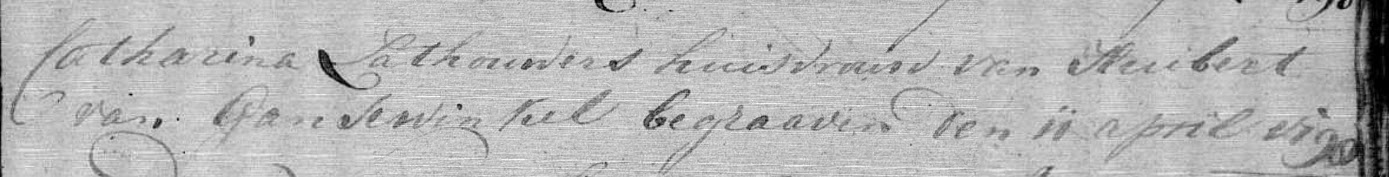 Catharina Lathouwers huisvrouw van Huibert
van Gansewinkel begraaven den ii april